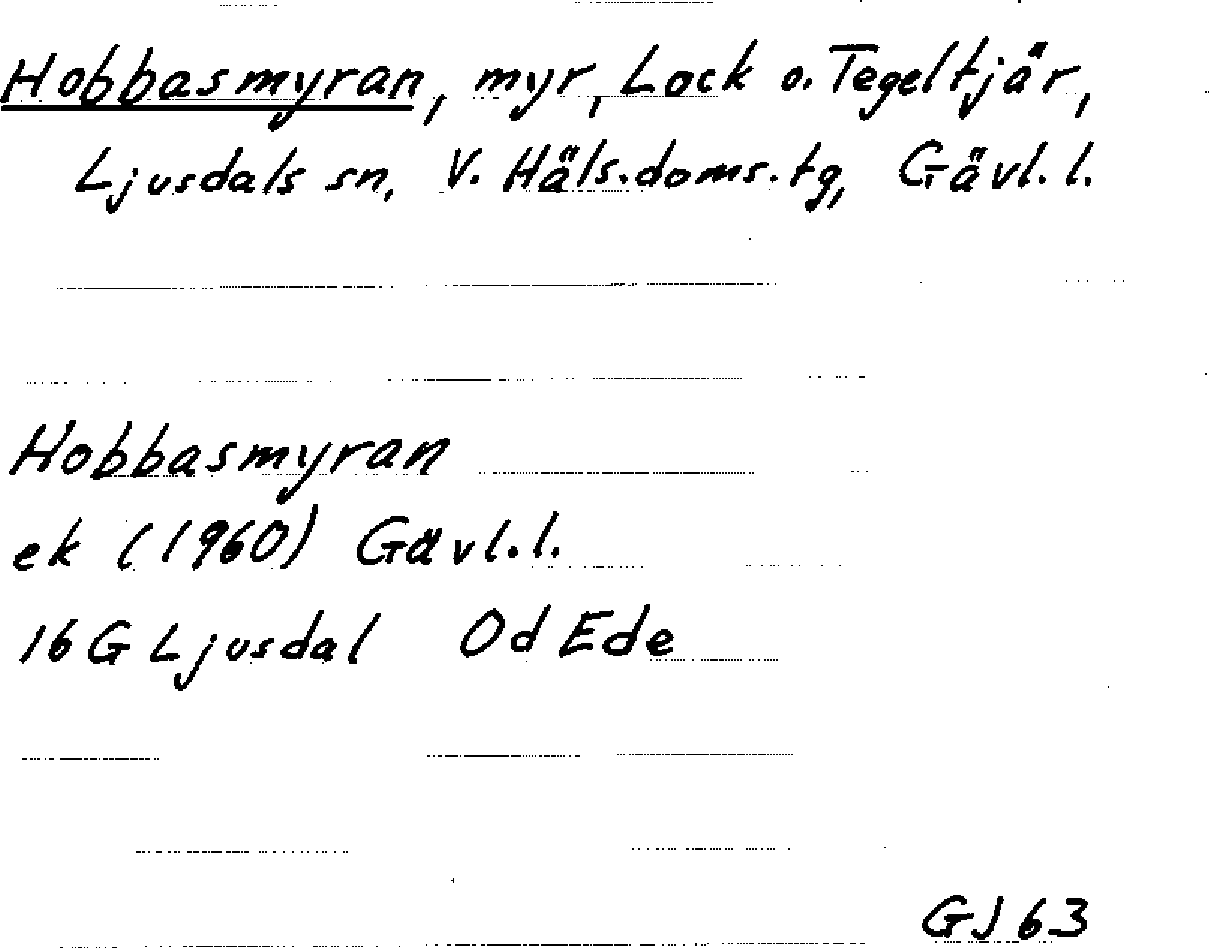 Hobbasmyran, myr, Lock o. Tegeltjär,
Ljusdals sn, V. Häls.doms.tg, Gävl.l.
Hobbasmyran
ek (1960) Gävl.l.
16G Ljusdal Od Ede
GJ 63